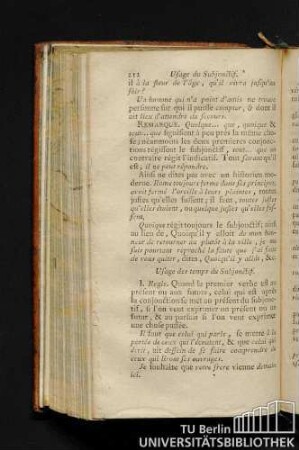 212 Usage du Subjonctif.
il à la fleur de l'âge, qu'il vivra jusqu'au
soir?
Un homme qui n'a point d'amis ne trouve
personne sur qui il puisse compter, & dont il
ait lieu d'attendre du secours.
REMARQUE. Quoique... que, quoique &
tout... que signifient à peu près la même cho-
se; néanmoins les deux premières conjonc-
tions régissent le subjonctif, tout... que au
contraire régit l'indicatif. Tout savant qu'il
est, il ne peut répondre.
Ainsi ne dites pas avec un historien mo-
derne. Rome toujours ferme dans ses principes,
avoit fermé l'oreille à leurs plaintes, toutes
justes qu'elles fussent; il faut, toutes justes
qu'elles étoient, ou quoique justes qu'elles fus-
sent.
Quoique régit toujours le subjonctif; ainsi
au lieu de, Quoiqu'il y alloit de mon hon-
neur de retourner au plutôt à la ville, je ne
fais pourtant reproché la faute que j'ai faite
de vous quitter, dites, Quoiqu'il y allât, &c.
Usage des temps du Subjonctif.
I. Règle. Quand le premier verbe est au
présent ou au futur, celui qui est après
la conjonction se met au présent du subjonc-
tif, si l'on veut exprimer un présent ou un
futur, & au parfait si l'on veut exprimer
une chose passée.
Il faut que celui qui parle, se mette à la
portée de ceux qui l'écoutent, & que celui qui
écrit, ait dessein de se faire comprendre de
ceux qui liront ses ouvrages.
Je souhaite que votre frère vienne demain
ici.
TU Berlin
UNIVERSITÄTSBIBLIOTHEK